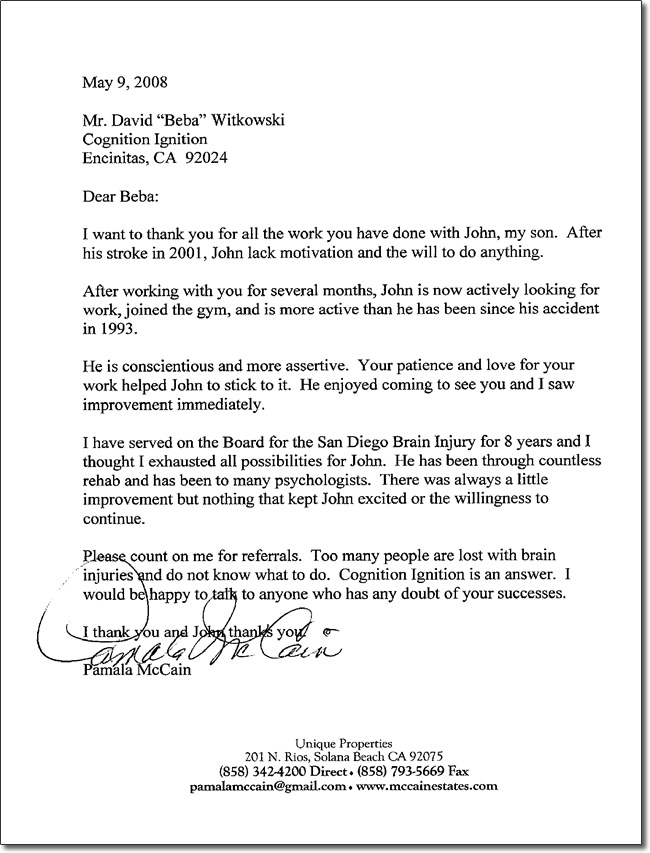 May 9, 2008
Mr. David “Beba” Witkowski
Cognition Ignition
Encinitas, CA  92024
Dear Beba:
I want to thank you for all the work you have done with John, my son.  After
his stroke in 2001, John lack motivation and the will to do anything.
After working with you for several months, John is now actively looking for
work, joined the gym, and is more active than he has been since his accident
in 1993.
He is conscientious and more assertive.  Your patience and love for your
work helped John to stick to it.  He enjoyed coming to see you and I saw
improvement immediately.
I have served on the Board for the San Diego Brain Injury for 8 years and I
thought I exhausted all possibilities for John.  He has been through countless
rehab and has been to many psychologists.  There was always a little
improvement but nothing that kept John excited or the willingness to
continue.
Please count on me for referrals.  Too many people are lost with brain
injuries and do not know what to do.  Cognition Ignition is an answer.  I
would be happy to talk to anyone who has any doubt of your successes.
I thank you and John thanks you.
Pamala McCain
Pamala McCain
Unique Properties
201 N. Rios, Solana Beach CA 92075
(858) 342-4200 Direct • (858) 793-5669 Fax
pamalamccain@gmail.com • www.mccainestates.com